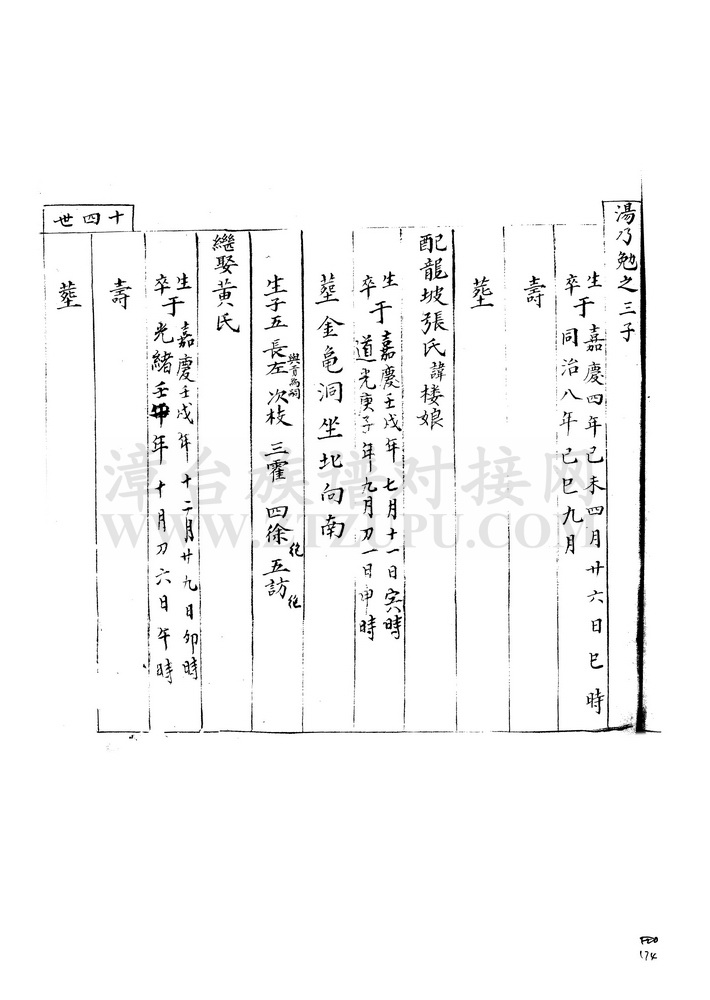 湯乃勉之三子
生于嘉慶四年己未四月廿六日巳時
卒于同治八年己巳九月
壽
塟
配龍坡張氏諱棲娘
生于嘉慶壬戌年七月十一日寅時
卒于道光庚子年九月刀一日申時
塟金亀洞坐北向南
生子五 長左 次枝 三霍 四徐 绝 五訪 绝
繼娶黃氏
生于嘉慶壬戌年十二月廿九日卯時
卒于光緒壬年十月刀六日午時
壽
塟
十四世
漳台族谱对接网
WWW.ZTZUPU.COM
174